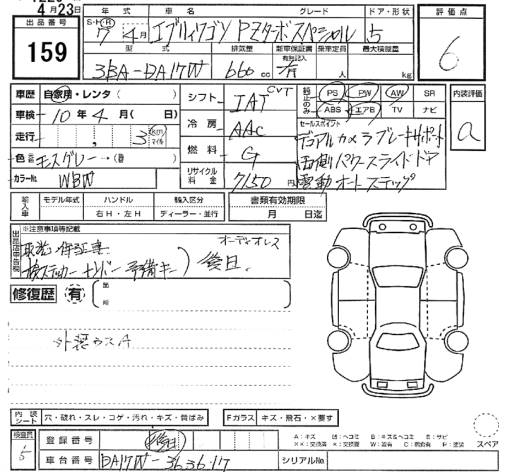 4月23日
出品番号
159
年式 車名 グレード ドア・形状 評価点
S・H・R 7年4月 エブリィワゴン PZターボスペシャル 5
6
型式 排気量 新車保証書 乗車定員 最大積載量
有無記入
3BA-DA17W 660cc 有 人 kg
車歴 自家用・レンタ( )
車検 10年4月( 日)
走行 3 Km マイル
色 モスグレー ( 番)
カラーNo. WBW
シフト IAT CVT
冷房 AAC
燃料 G
リサイクル料金 7150円
PS PW AW SR
ABS エアB TV ナビ
セールスポイント
デュアルカメラブレーキサポート
両側パワースライドドア
電動オートステップ
内装評価
a
輸入車 モデル年式 ハンドル 輸入区分 書類有効期限
年 右H・左H ディーラー・並行 月 日迄
※注意事項等記載
オーディオレス
取説 保証書
検ステッカー ナンバー 予備キー 後日
修復歴 有 箇所
外装ウスA
内装シート 穴・破れ・スレ・コゲ・汚れ・キズ・黄ばみ Fガラス キズ・飛石・×要す
検査員
5
登録番号 後日
車台番号 DA17W-363617 シリアルNo.
スペア